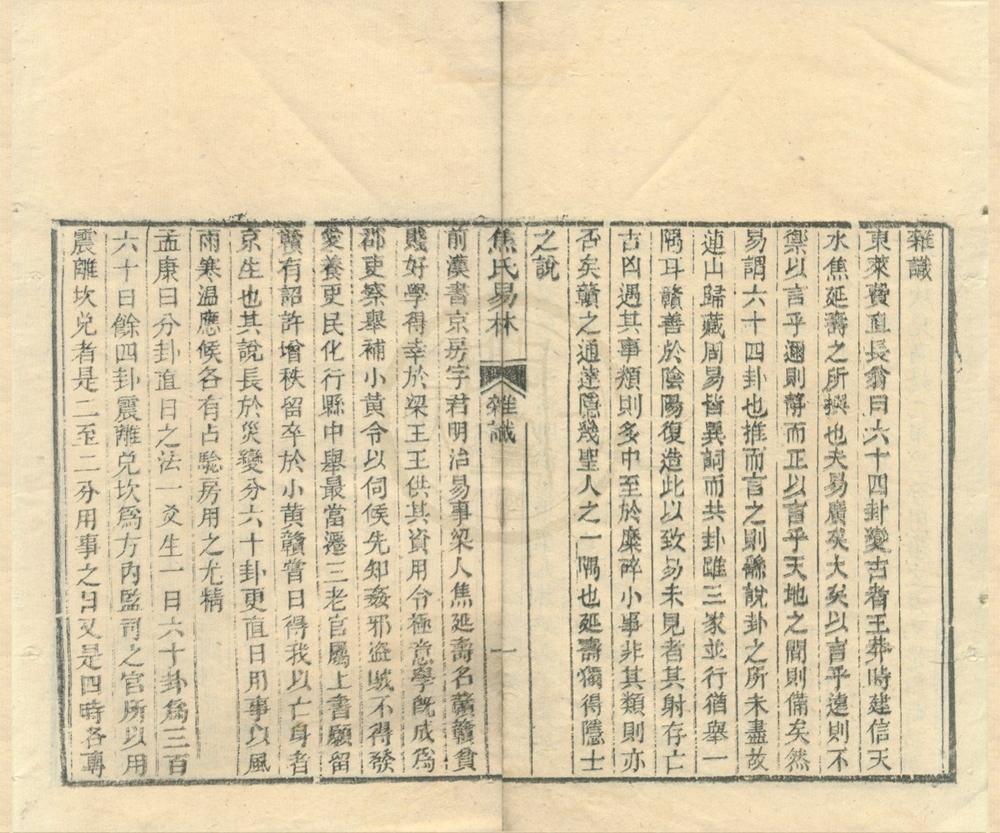 雜識
東萊費直長翁曰六十四卦變古者王莽時建信天
水焦延壽之所撰也夫易廣矣大矣以言乎遠則不
禦以言乎邇則靜而正以言乎天地之間則備矣然
易謂六十四卦也推而言之則繇說卦之所未盡故
連山歸藏周易皆異詞而共卦雖三家並行猶舉一
隅耳贛善於陰陽復造此以致易未見者其射存亡
吉凶遇其事類則多中至於糜碎小事非其類則亦
否矣贛之通達隱幾聖人之一隅也延壽獨得隱士
之說
焦氏易林 雜識 一
前漢書京房字君明治易事梁人焦延壽名贛贛貧
賤好學得幸於梁王王供其資用令極意學旣成爲
郡吏察舉補小黃令以伺候先知姦邪盜賊不得發
愛養吏民化行縣中舉最當遷三老官屬上書願留
贛有詔許增秩留卒於小黃贛嘗曰得我以亡身者
京生也其說長於災變分六十卦更直日用事以風
雨寒溫應候各有占驗房用之尤精
孟康曰分卦直日之法一爻生一日六十卦爲三百
六十日餘四卦震離兌坎爲方內監司之官所以用
震離坎兌者是二至二分用事之日又是四時各專